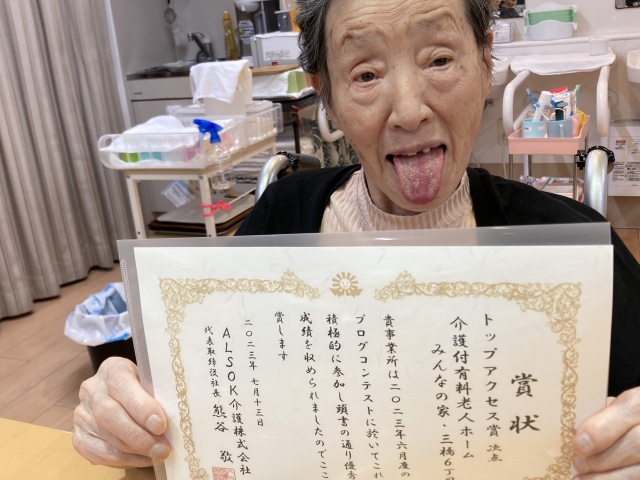 賞状
トップアクセス賞 次点
介護付有料老人ホーム
みんなの家・三橋6丁目
貴事業所は二〇二三年六月度の
ブログコンテストに於いてこれ
積極的に参加し頭書の通り優秀
成績を収められましたのでここ
賞します
二〇二三年 七月十三日
ALSOK介護株式会社
代表取締役社長 熊谷 敬